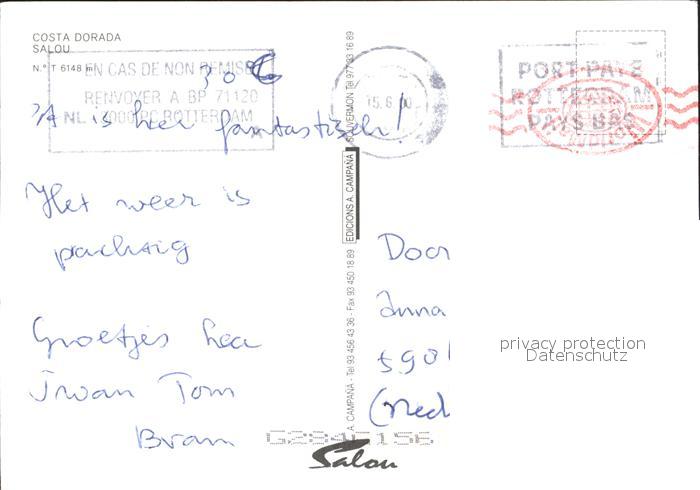 COSTA DORADA
SALOU
N.° T 6148
30 €
EN CAS DE NON REMISE
RENVOYER A BP 71120
NL 3000 RC ROTTERDAM
't is hier fantastisch!
Het weer is
prachtig
Groetjes
Iwan Tom
Bram
EDICIONS A. CAMPAÑA
A. CAMPAÑA - Tel 93 456 43 36 - Fax 93 450 18 89
SOUVERMON Tel 977 93 16 89
15.6.00
PORT PAYE
ROTTERDAM
PAYS BAS
Door
Anna
590
(Ned
privacy protection
Datenschutz
Salou